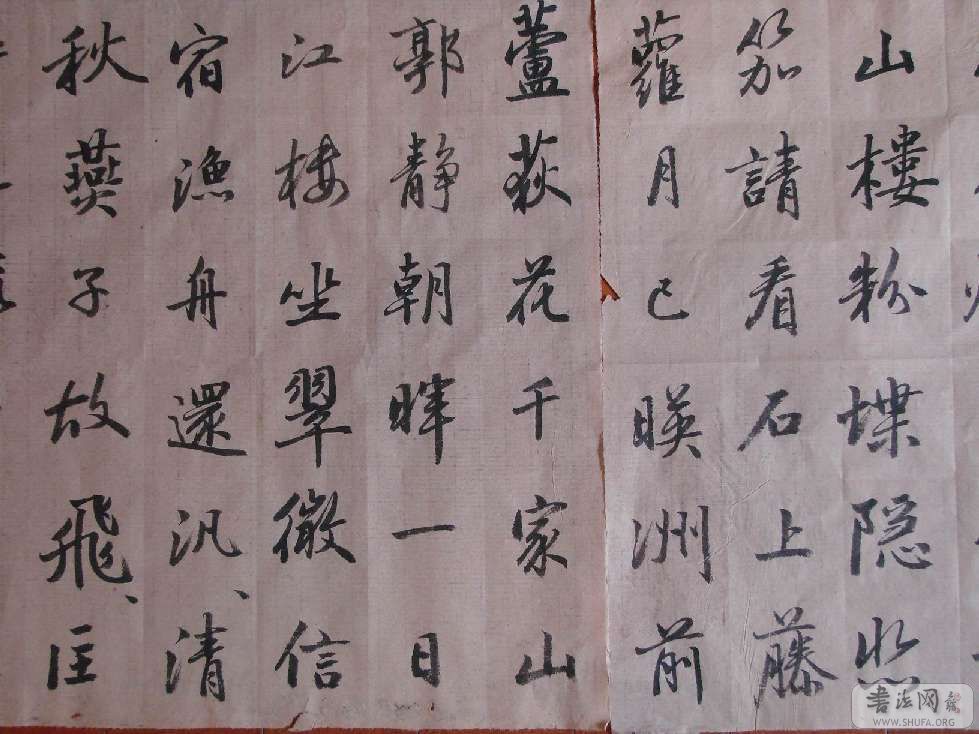 山樓粉堞隐悲
笳請看石上藤
蘿月已暎洲前
蘆荻花千家山
郭静朝暉一日
江楼坐翠微信
宿漁舟還汎、清
秋燕子故飛、匡
書法网
WWW.SHUFA.ORG